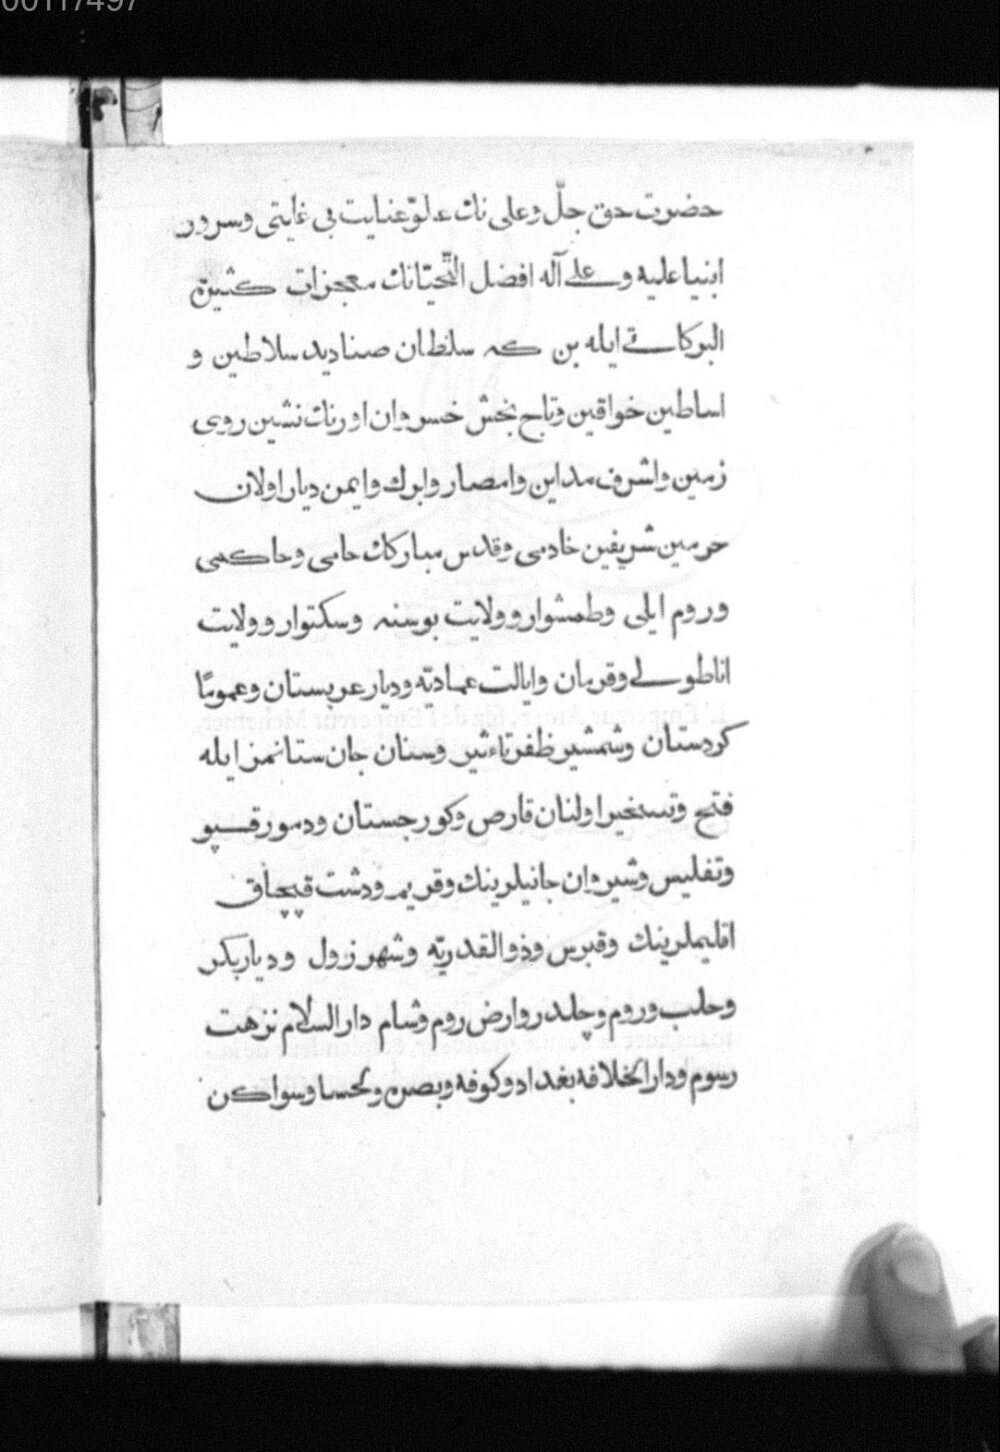 00117497
حضرت حق جلّ وعلى نك علوّ عنايت بى غايتى وسرور
انبيا عليه وعلى آله افضل التّحيّانك معجزات كثيرة
البركاتى ايله بن كه سلطان صناديد سلاطين و
اساطين خواقين وتاج بخش خسروان اورنك نشين روى
زمين واشرف مداين وامصار وابرك وايمن ديار اولان
حرمين شريفين خادمى وقدس مباركك حامى وحاكمى
وروم ايلى وطمشوار وولايت بوسنه وسكتوار وولايت
اناطولى وقرمان وايالت عماديّه وديار عربستان وعموما
كردستان وشمشير ظفر تاءثير وسنان جان ستانمز ايله
فتح وتسخير اولنان قارص وكورجستان ودمورقپو
وتفليس وشيروان جانبلرينك وقريم ودشت قپچاق
اقليملرينك وقبرس وذوالقدريّه وشهرزول ودياربكر
وحلب وروم وچلدر وارض روم وشام دار السلام نزهت
رسوم ودار الخلافه بغداد وكوفه وبصره ولحسا وسواكن